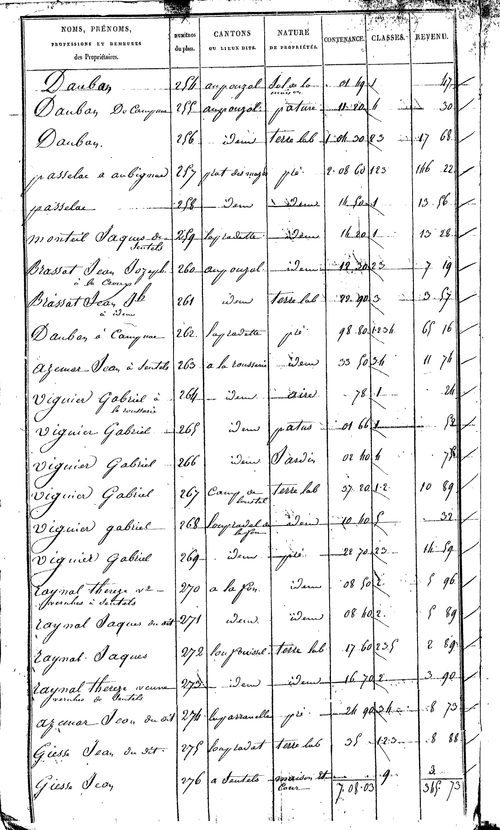 NOMS, PRÉNOMS, PROFESSIONS ET DEMEURES des Propriétaires. numéros du plan. CANTONS OU LIEUX DITS. NATURE DE PROPRIÉTÉS. CONTENANCE. CLASSES. REVENU.
Dauban 254 aupouzol Sol de la maison 01 49 1 47
Dauban De Campuac 255 aupouzol pature 11 20 6 30
Dauban 256 idem terre lab 1 04 30 23 17 68
passelac a aubignac 257 prat del pré 2 08 60 123 146 22
passelac 258 idem idem 14 50 1 13 56
monteil Jaques de Sentels 259 lapradette idem 14 20 1 13 28
Brassat Jean Joseph 260 aupouzol idem 12 30 23 7 19
Brassat Jean Jh à idem 261 idem terre lab 22 90 3 3 57
Dauban à Campuac 262 lapradette pré 98 80 1234 65 16
azemar Jean à Sentels 263 a la roussarie idem 33 50 34 11 76
viguier Gabriel à la roussarie 264 idem aire 78 1 24
viguier Gabriel 265 idem patus 01 66 1 52
viguier Gabriel 266 idem Jardin 02 40 6 75
viguier Gabriel 267 Camp de terre lab 37 20 12 10 89
viguier gabriel 268 loupradal de lafon idem 10 40 5 32
viguier Gabriel 269 idem pré 22 70 23 14 59
raynal thereze ve à Sentels 270 a la fon idem 08 50 2 5 96
raynal Jaques du dit 271 idem idem 08 40 2 5 89
raynal Jaques 272 terre lab 17 60 235 2 89
raynal thereze veuve de Sentels 273 idem idem 16 70 2 3 90
azemar Jean du dit 274 pré 24 90 34 8 73
Giesse Jean du dit 275 loupradat terre lab 35 123 8 88
Giesse Jean 276 a Sentels maison et Cour 9 3
7 08 03 365 73